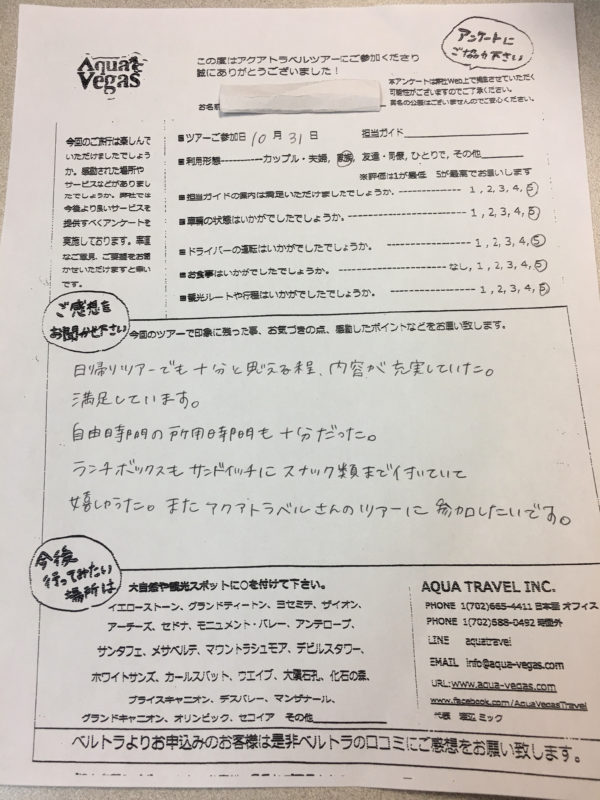 Aqua Vegas
この度はアクアトラベルツアーにご参加くださり
誠にありがとうございました！
アンケートに
ご協力下さい
本アンケートは弊社Web上で掲載させていただく
可能性がございますのでご了承ください。
実名の公開はございませんのでご安心ください。
お名前
今回のご旅行は楽しんで
いただけましたでしょう
か。感動された場所や
サービスなどがありまし
たでしょうか。弊社では
今後より良いサービスを
提供すべくアンケートを
実施しております。率直
なご意見、ご要望をお聞
かせいただけますと幸い
です。
■ツアーご参加日 10 月 31 日 担当ガイド
■利用形態-----------カップル・夫婦, 家族, 友達・同僚, ひとりで, その他
※評価は1が最低 5が最高でお願いします
■担当ガイドの案内は満足いただけましたでしょうか。 ---------------- 1, 2, 3, 4, 5
■車輌の状態はいかがでしたでしょうか。 ---------------- 1, 2, 3, 4, 5
■ドライバーの運転はいかがでしたでしょうか。 ---------------- 1, 2, 3, 4, 5
■お食事はいかがでしたでしょうか。 ---------------- なし, 1, 2, 3, 4, 5
■観光ルートや行程はいかがでしたでしょうか。 ---------------- 1, 2, 3, 4, 5
ご感想を
お聞かせ下さい
今回のツアーで印象に残った事、お気づきの点、感動したポイントなどをお願い致します。
日帰りツアーでも十分と思える程、内容が充実していた。
満足しています。
自由時間の所用時間も十分だった。
ランチボックスもサンドイッチにスナック類まで付いていて
嬉しかった。またアクアトラベルさんのツアーに参加したいです。
今後
行ってみたい
場所は
大自然や観光スポットに○を付けて下さい。
イエローストーン、グランドティートン、ヨセミテ、ザイオン、
アーチーズ、セドナ、モニュメント・バレー、アンテロープ、
サンタフェ、メサベルテ、マウントラシュモア、デビルスタワー、
ホワイトサンズ、カールスバット、ウエイブ、大隕石孔、化石の森、
ブライスキャニオン、デスバレー、マンザナール、
グランドキャニオン、オリンピック、セコイア その他
AQUA TRAVEL INC.
PHONE 1(702)665-4411 日本語 オフィス
PHONE 1(702)588-0492 時間外
LINE aquatravel
EMAIL info@aqua-vegas.com
URL:www.aqua-vegas.com
www.facebook.com/AquaVegasTravel
代表 渡辺 ミック
ベルトラよりお申込みのお客様は是非ベルトラの口コミにご感想をお願い致します。